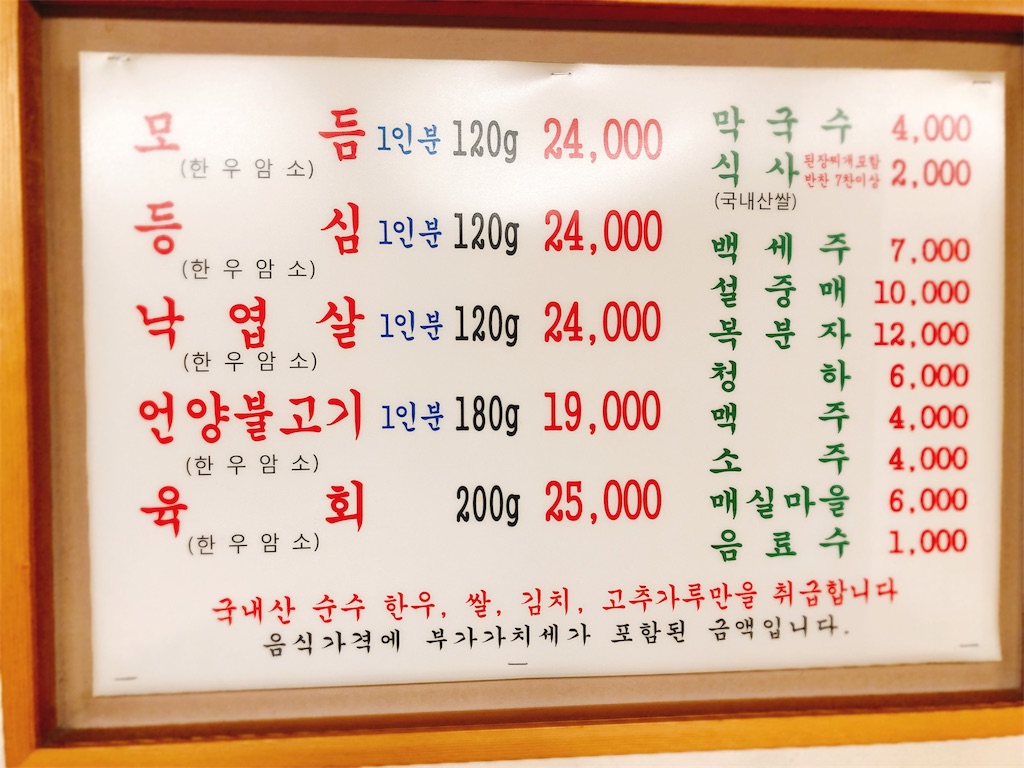 모듬 1인분 120g 24,000
(한우암소)
등심 1인분 120g 24,000
(한우암소)
낙엽살 1인분 120g 24,000
(한우암소)
언양불고기 1인분 180g 19,000
(한우암소)
육회 200g 25,000
(한우암소)
막국수 4,000
식사 된장찌개포함 반찬 7찬이상 2,000
(국내산쌀)
백세주 7,000
설중매 10,000
복분자 12,000
청하 6,000
맥주 4,000
소주 4,000
매실마을 6,000
음료수 1,000
국내산 순수 한우, 쌀, 김치, 고추가루만을 취급합니다
음식가격에 부가가치세가 포함된 금액입니다.